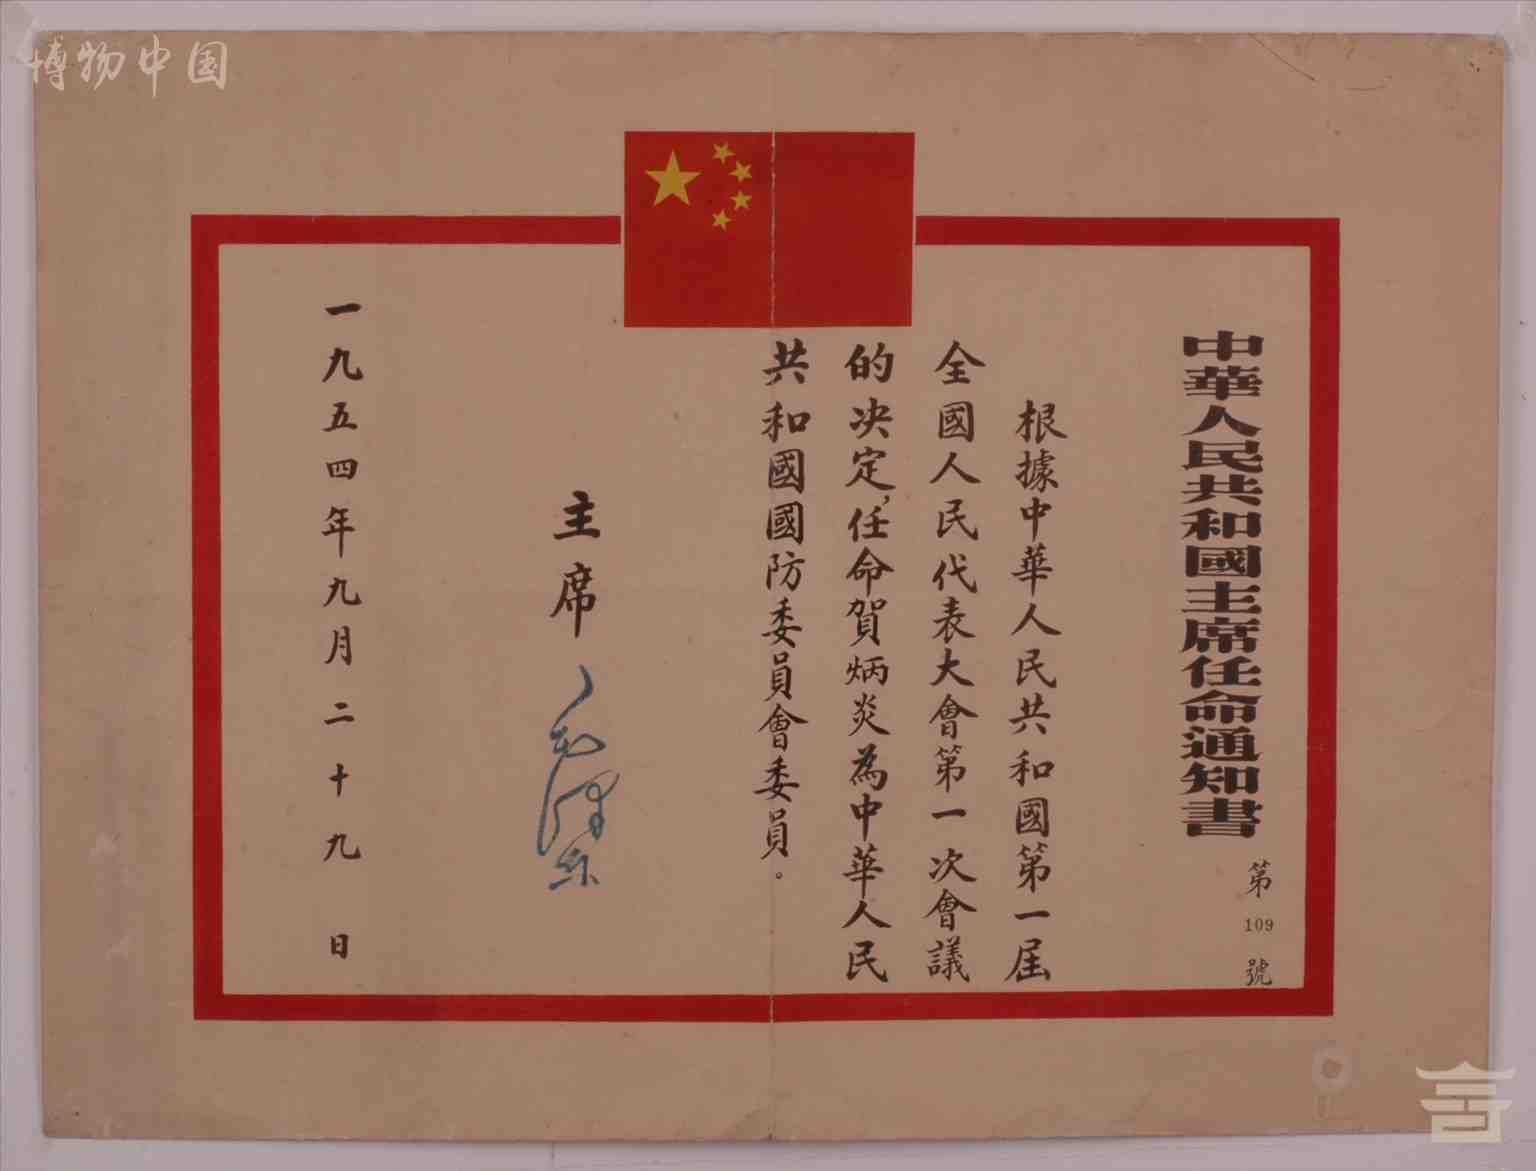 博物中国
中華人民共和國主席任命通知書
第109號
根據中華人民共和國第一屆
全國人民代表大會第一次會議
的決定,任命賀炳炎為中華人民
共和國國防委員會委員。
主席 毛澤東
一九五四年九月二十九日